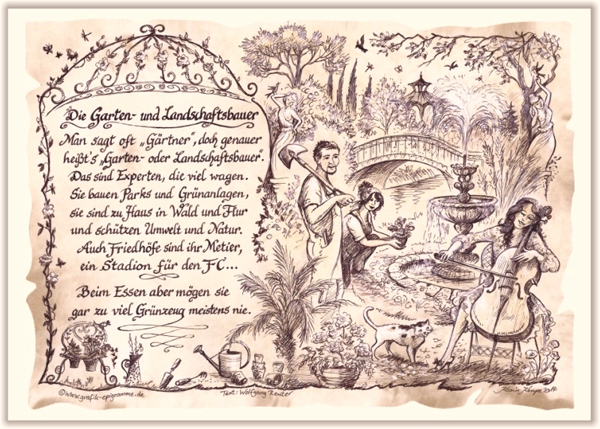 Die Garten- und Landschaftsbauer
Man sagt oft „Gärtner", doch genauer
heißt's „Garten- oder Landschaftsbauer".
Das sind Experten, die viel wagen.
Sie bauen Parks und Grünanlagen,
sie sind zu Haus in Wald und Flur
und schützen Umwelt und Natur.
Auch Friedhöfe sind ihr Metier,
ein Stadion für den FC...
Beim Essen aber mögen sie
gar zu viel Grünzeug meistens nie.
©www.grafik-epigramme.de
Text: Wolfgang Reuter